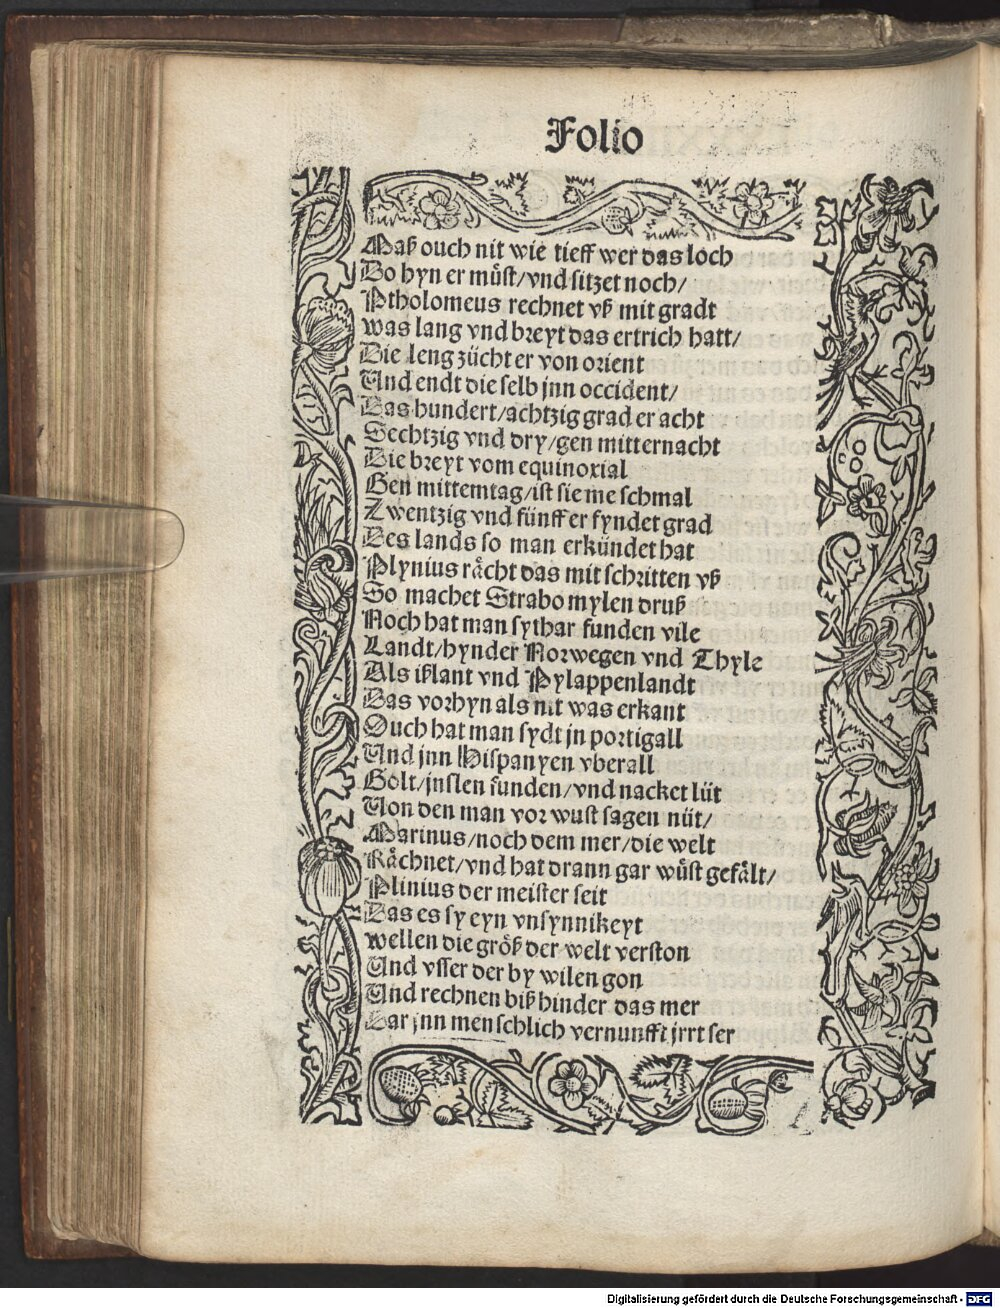 Folio
Maß ouch nit wie tieff wer das loch
Do hyn er muͤst/vnd sitzet noch/
Ptholomeus rechnet vß mit gradt
was lang vnd breyt das ertrich hatt/
Die leng zücht er von orient
Und endt die selb jnn occident/
Das hundert/achtzig grad er acht
Sechtzig vnd dry/gen mitternacht
Die breyt vom equinoxial
Gen mittemtag/ist sie me schmal
Zwentzig vnd fünff er fyndet grad
Des lands so man erkündet hat
Plynius raͤcht das mit schritten vß
So machet Strabo mylen druß
Noch hat man sythar funden vile
Landt/hynder Norwegen vnd Thyle
Als ißlant vnd Pylappenlandt
Das vorhyn als nit was erkant
Ouch hat man sydt jn portigall
Und jnn Hispanyen vberall
Golt/jnslen funden/vnd nacket lüt
Von den man vor wust sagen nüt/
Marinus/noch dem mer/die welt
Raͤchnet/vnd hat drann gar wuͤst gefaͤlt/
Plinius der meister seit
Das es sy eyn vnsynnikeyt
wellen die groͤß der welt verston
Und vsser der by wilen gon
Und rechnen biß hinder das mer
Dar jnn menschlich vernunfft jrrt ser
Digitalisierung gefördert durch die Deutsche Forschungsgemeinschaft - DFG